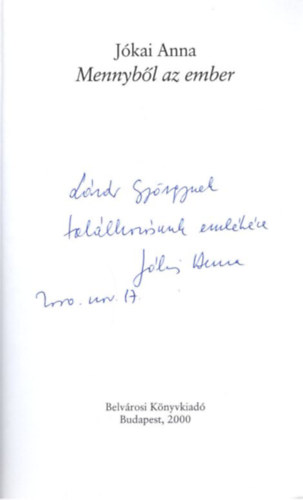 Jókai Anna
Mennyből az ember
Györgynek
találkozásunk emlékére
Jókai Anna
2000. nov. 17.
Belvárosi Könyvkiadó
Budapest, 2000